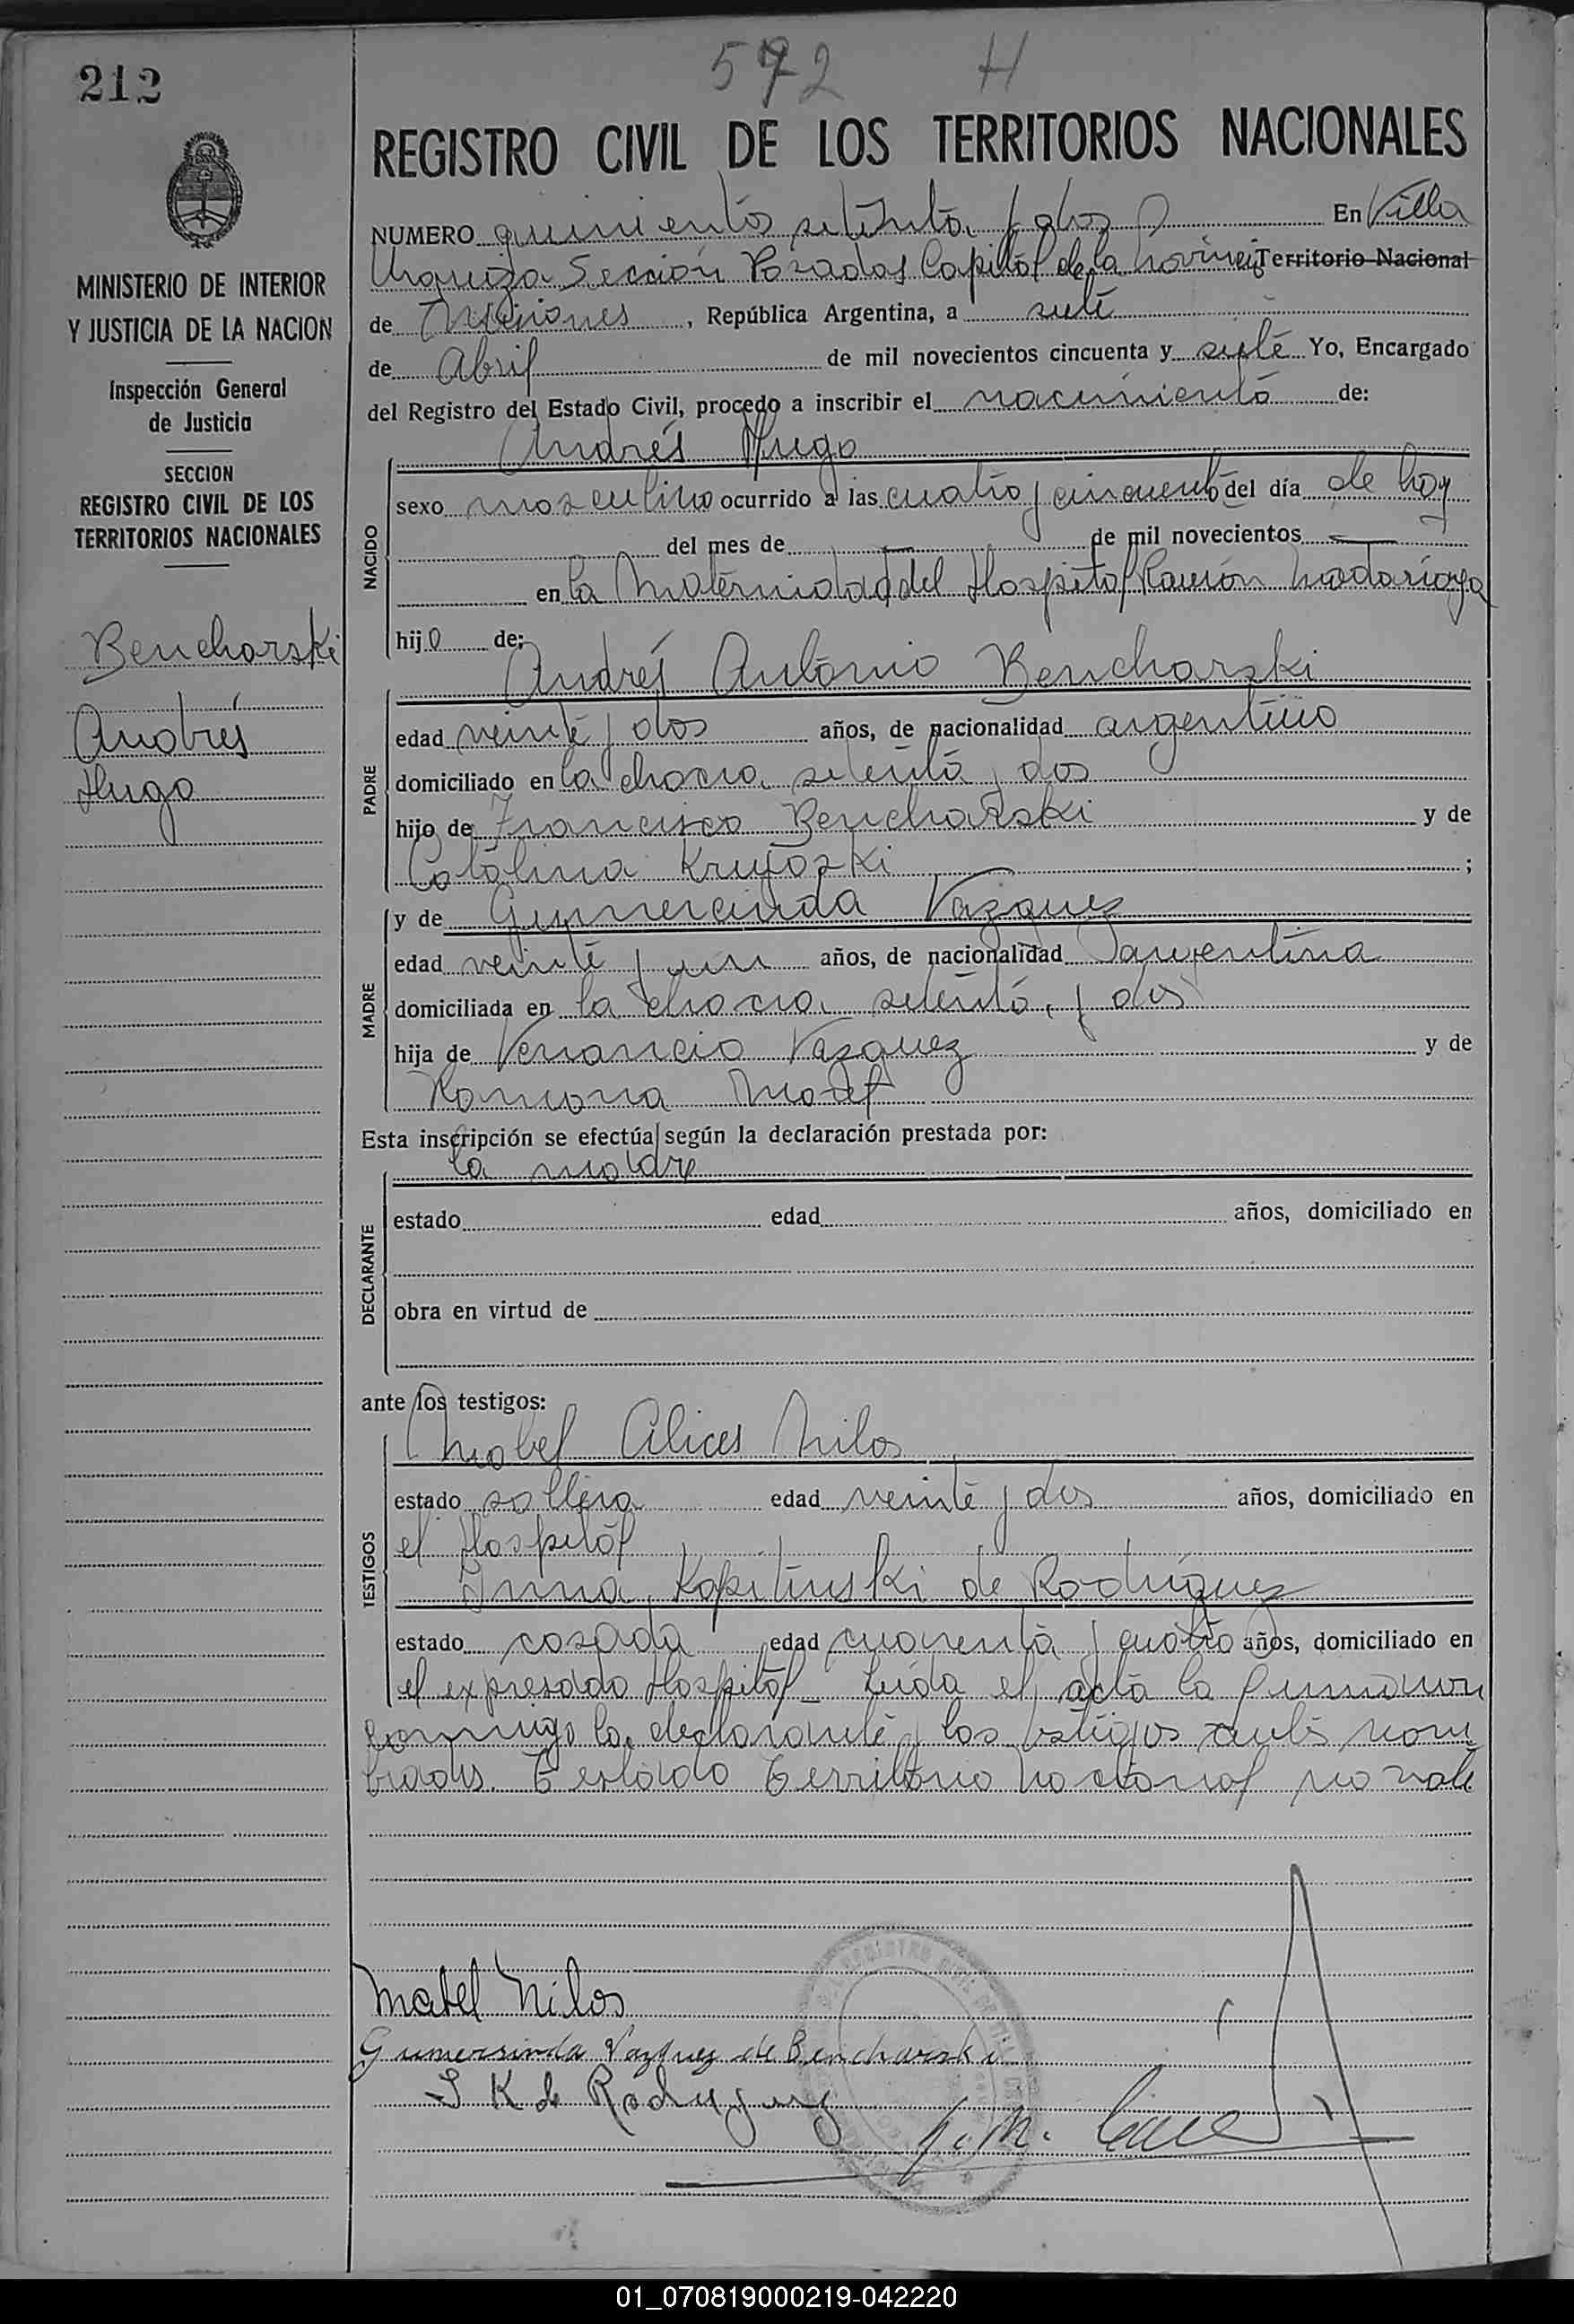 212
572 H
REGISTRO CIVIL DE LOS TERRITORIOS NACIONALES
MINISTERIO DE INTERIOR
Y JUSTICIA DE LA NACION
Inspección General
de Justicia
SECCION
REGISTRO CIVIL DE LOS
TERRITORIOS NACIONALES
Bencharski
Andrés
Hugo
NUMERO quinientos setenta y dos En Villa
Urquiza Sección Posadas Capital de la Provincia Territorio Nacional
de Misiones, República Argentina, a siete
de Abril de mil novecientos cincuenta y siete Yo, Encargado
del Registro del Estado Civil, procedo a inscribir el nacimiento de:
Andrés Hugo
NACIDO
sexo masculino ocurrido a las cuatro y cincuenta del día de hoy
del mes de — de mil novecientos —
en la Maternidad del Hospital Ramón Madariaga
hijo de:
Andrés Antonio Bencharski
PADRE
edad veinte y dos años, de nacionalidad argentino
domiciliado en la chacra setenta y dos
hijo de Francisco Bencharski y de
Catalina ;
y de Gumercinda Vazquez
MADRE
edad veinte y un años, de nacionalidad argentina
domiciliada en la chacra setenta y dos
hija de Venancio Vazquez y de
Ramona Morel
Esta inscripción se efectúa según la declaración prestada por:
la madre
DECLARANTE
estado edad años, domiciliado en
obra en virtud de
ante los testigos:
Mabel Alices Milos
TESTIGOS
estado soltera edad veinte y dos años, domiciliado en
el Hospital
Inna Kapitinski de Rodríguez
estado casada edad cuarenta y cuatro años, domiciliado en
el expresado Hospital - Leída el acta la firmaron
conmigo la declarante y los testigos antes nom
brados. Testado Territorio Nacional no vale
Mabel Milos
Gumersinda Vazquez de Bencharski
I K de Rodriguez
01_070819000219-042220